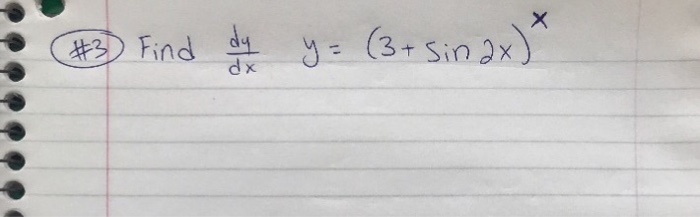 #3 Find dy/dx y = (3 + sin 2x)^x